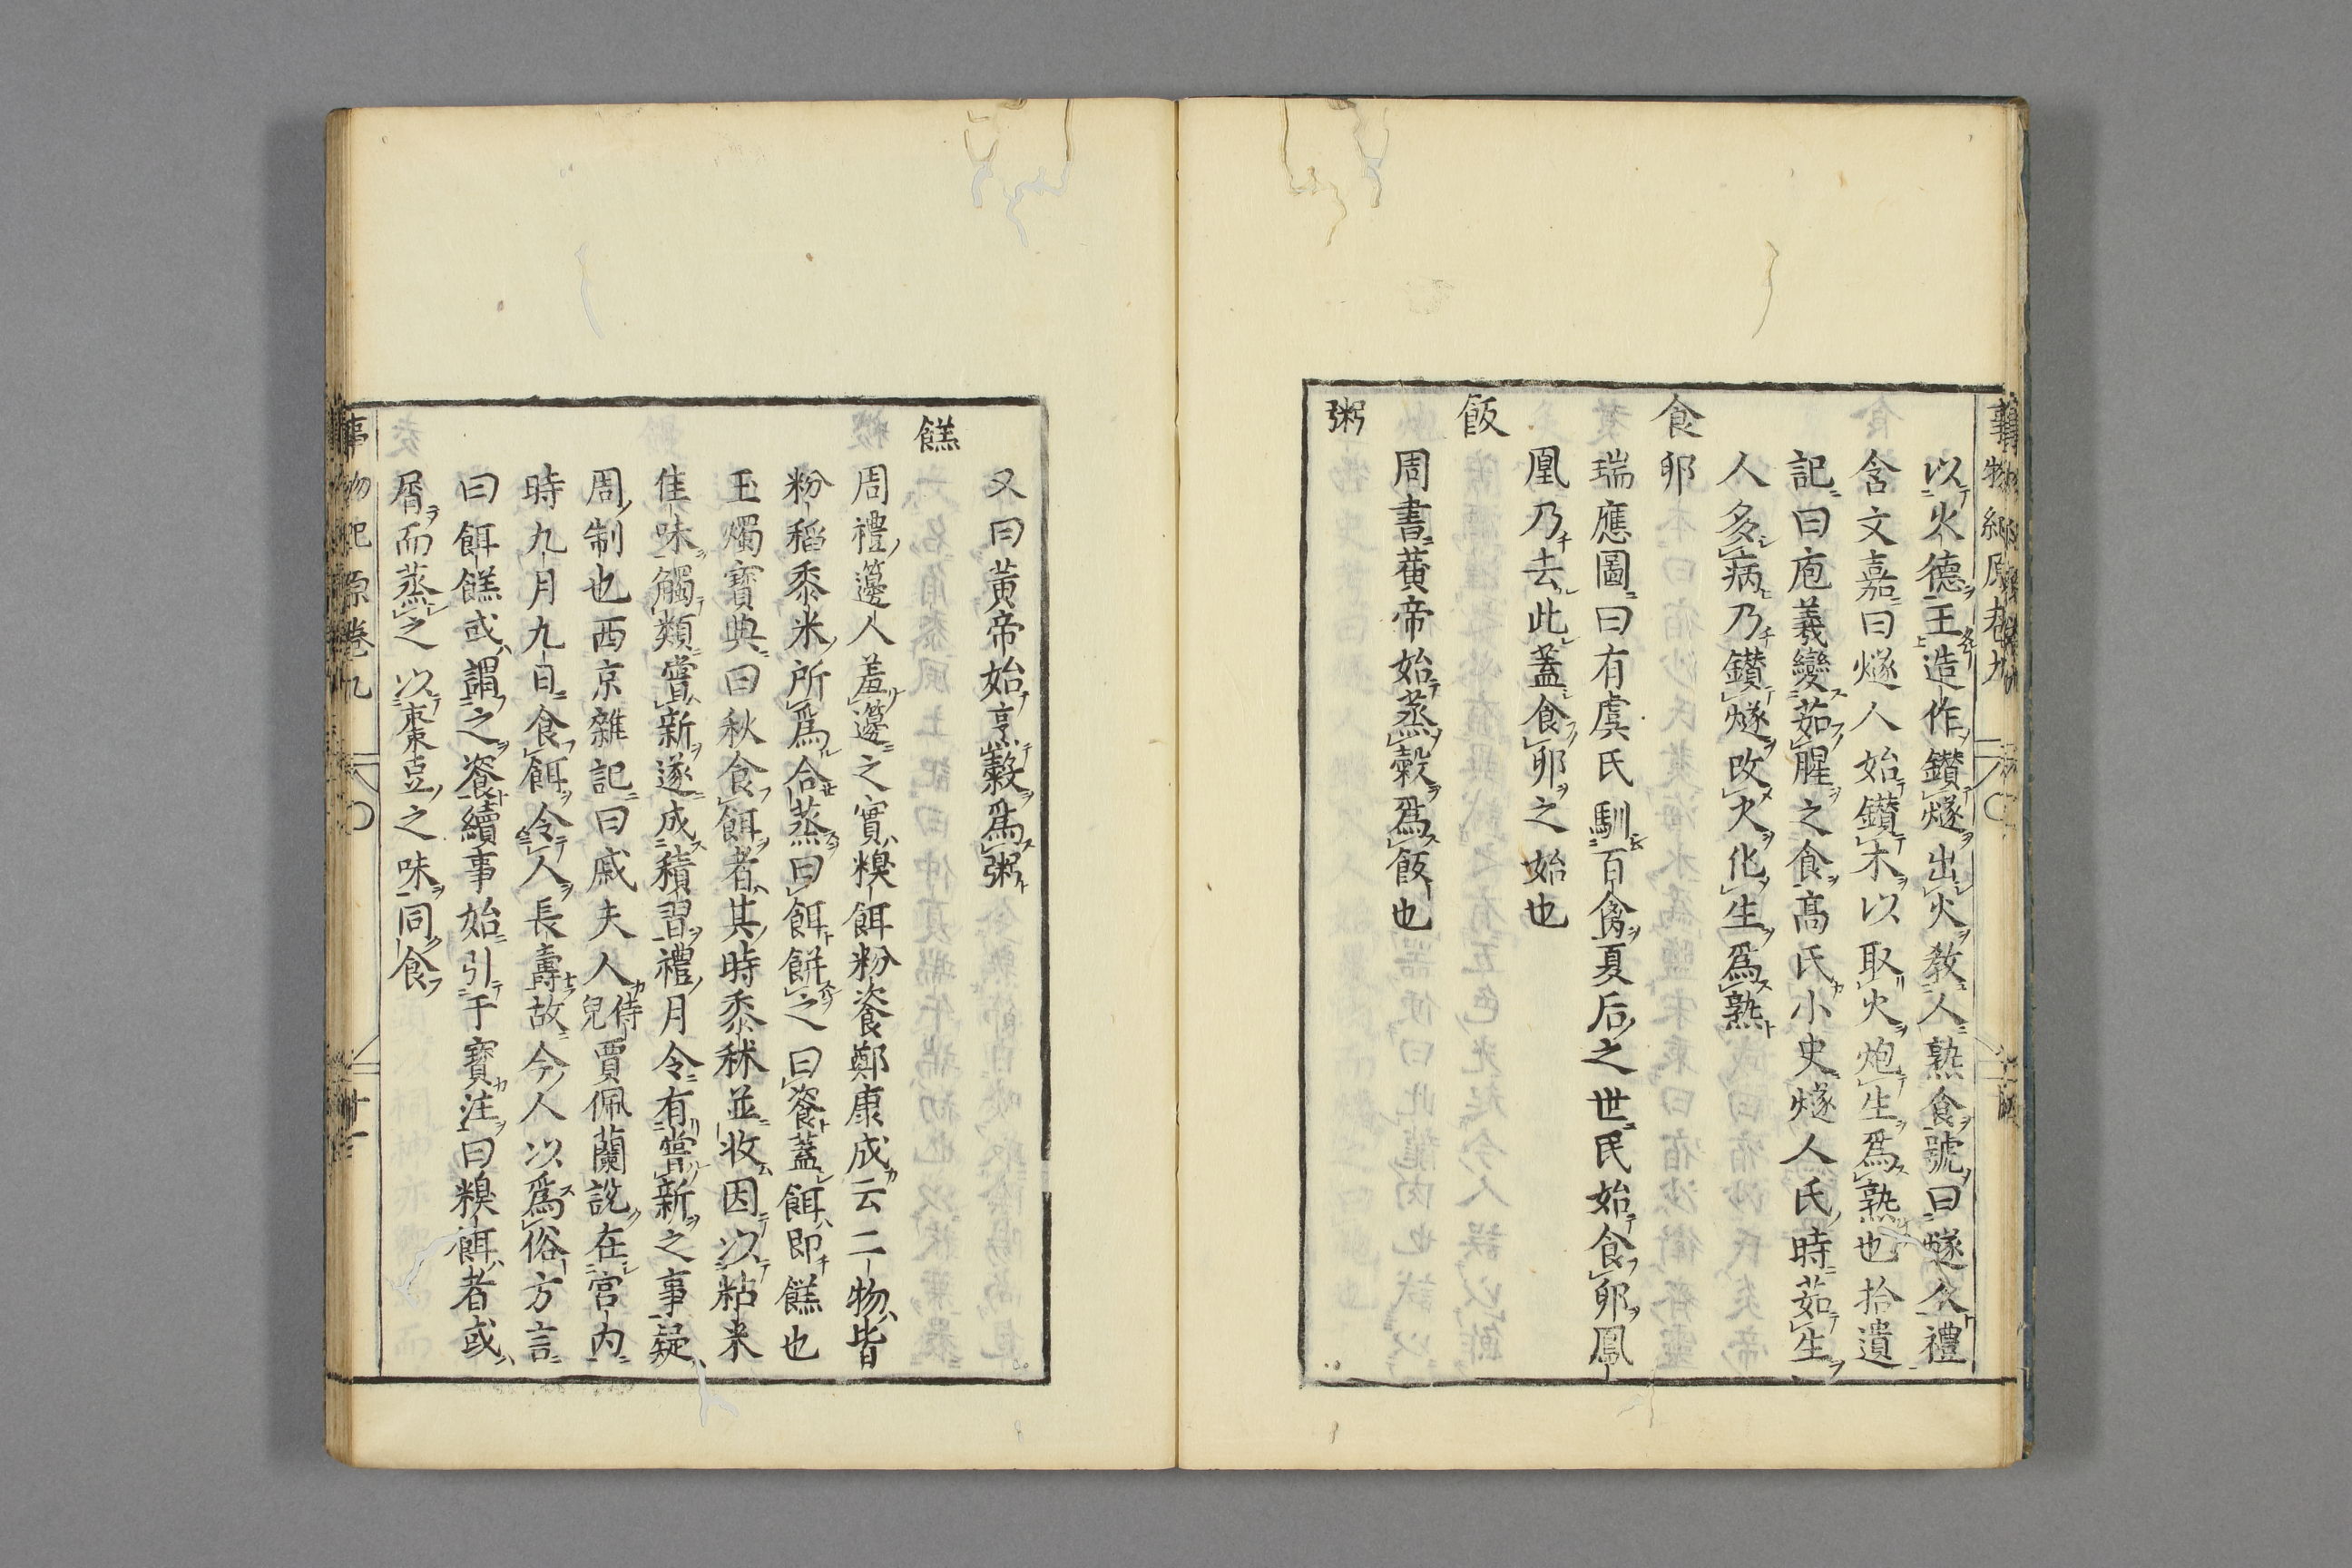 以火德王造作鑽燧出火教人熟食號曰燧人禮
含文嘉曰燧人始鑽木以取火炮生爲熟也拾遺
記曰庖羲變茹腥之食高氏小史燧人氏時茹生
人多病乃鑽燧改火化生爲熟
食卵
瑞應圖曰有虞氏馴百禽夏后之世民始食卵鳳
凰乃去此蓋食卵之始也
飯
周書黃帝始蒸穀爲飯也
粥
又曰黃帝始烹穀爲粥
餻
周禮籩人羞籩之實糗餌粉餈鄭康成云二物皆
粉稻黍米所爲合蒸曰餌餅之曰餈蓋餌即餻也
玉燭寶典曰秋食餌者其時黍秫並收因以粘米
佳味觸類嘗新遂成積習禮月令有嘗新之事疑
周制也西京雜記曰戚夫人侍兒賈佩蘭說在宮内
時九月九日食餌令人長壽故今人以爲俗方言
曰餌餻或謂之餈續事始引于寶注曰糗餌者或
屑而蒸之以棗豆之味同食
事物紀原卷九
十一